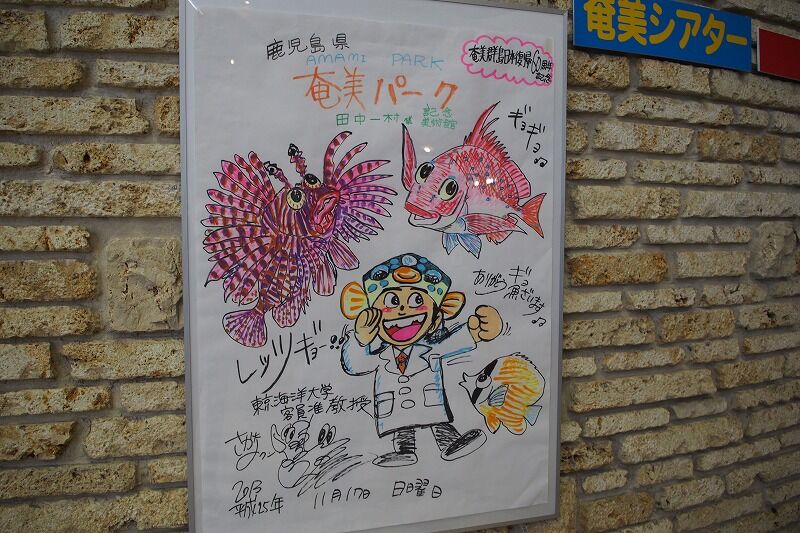 奄美シアター
鹿児島県
AMAMI PARK
奄美パーク
田中一村 記念
美術館
奄美群島日本復帰60周年
記念
ギョギョ
ありがとうギョ
魚ざいます
レッツギョー!!
東京海洋大学
客員准教授
2013
平成25年 11月17日 日曜日